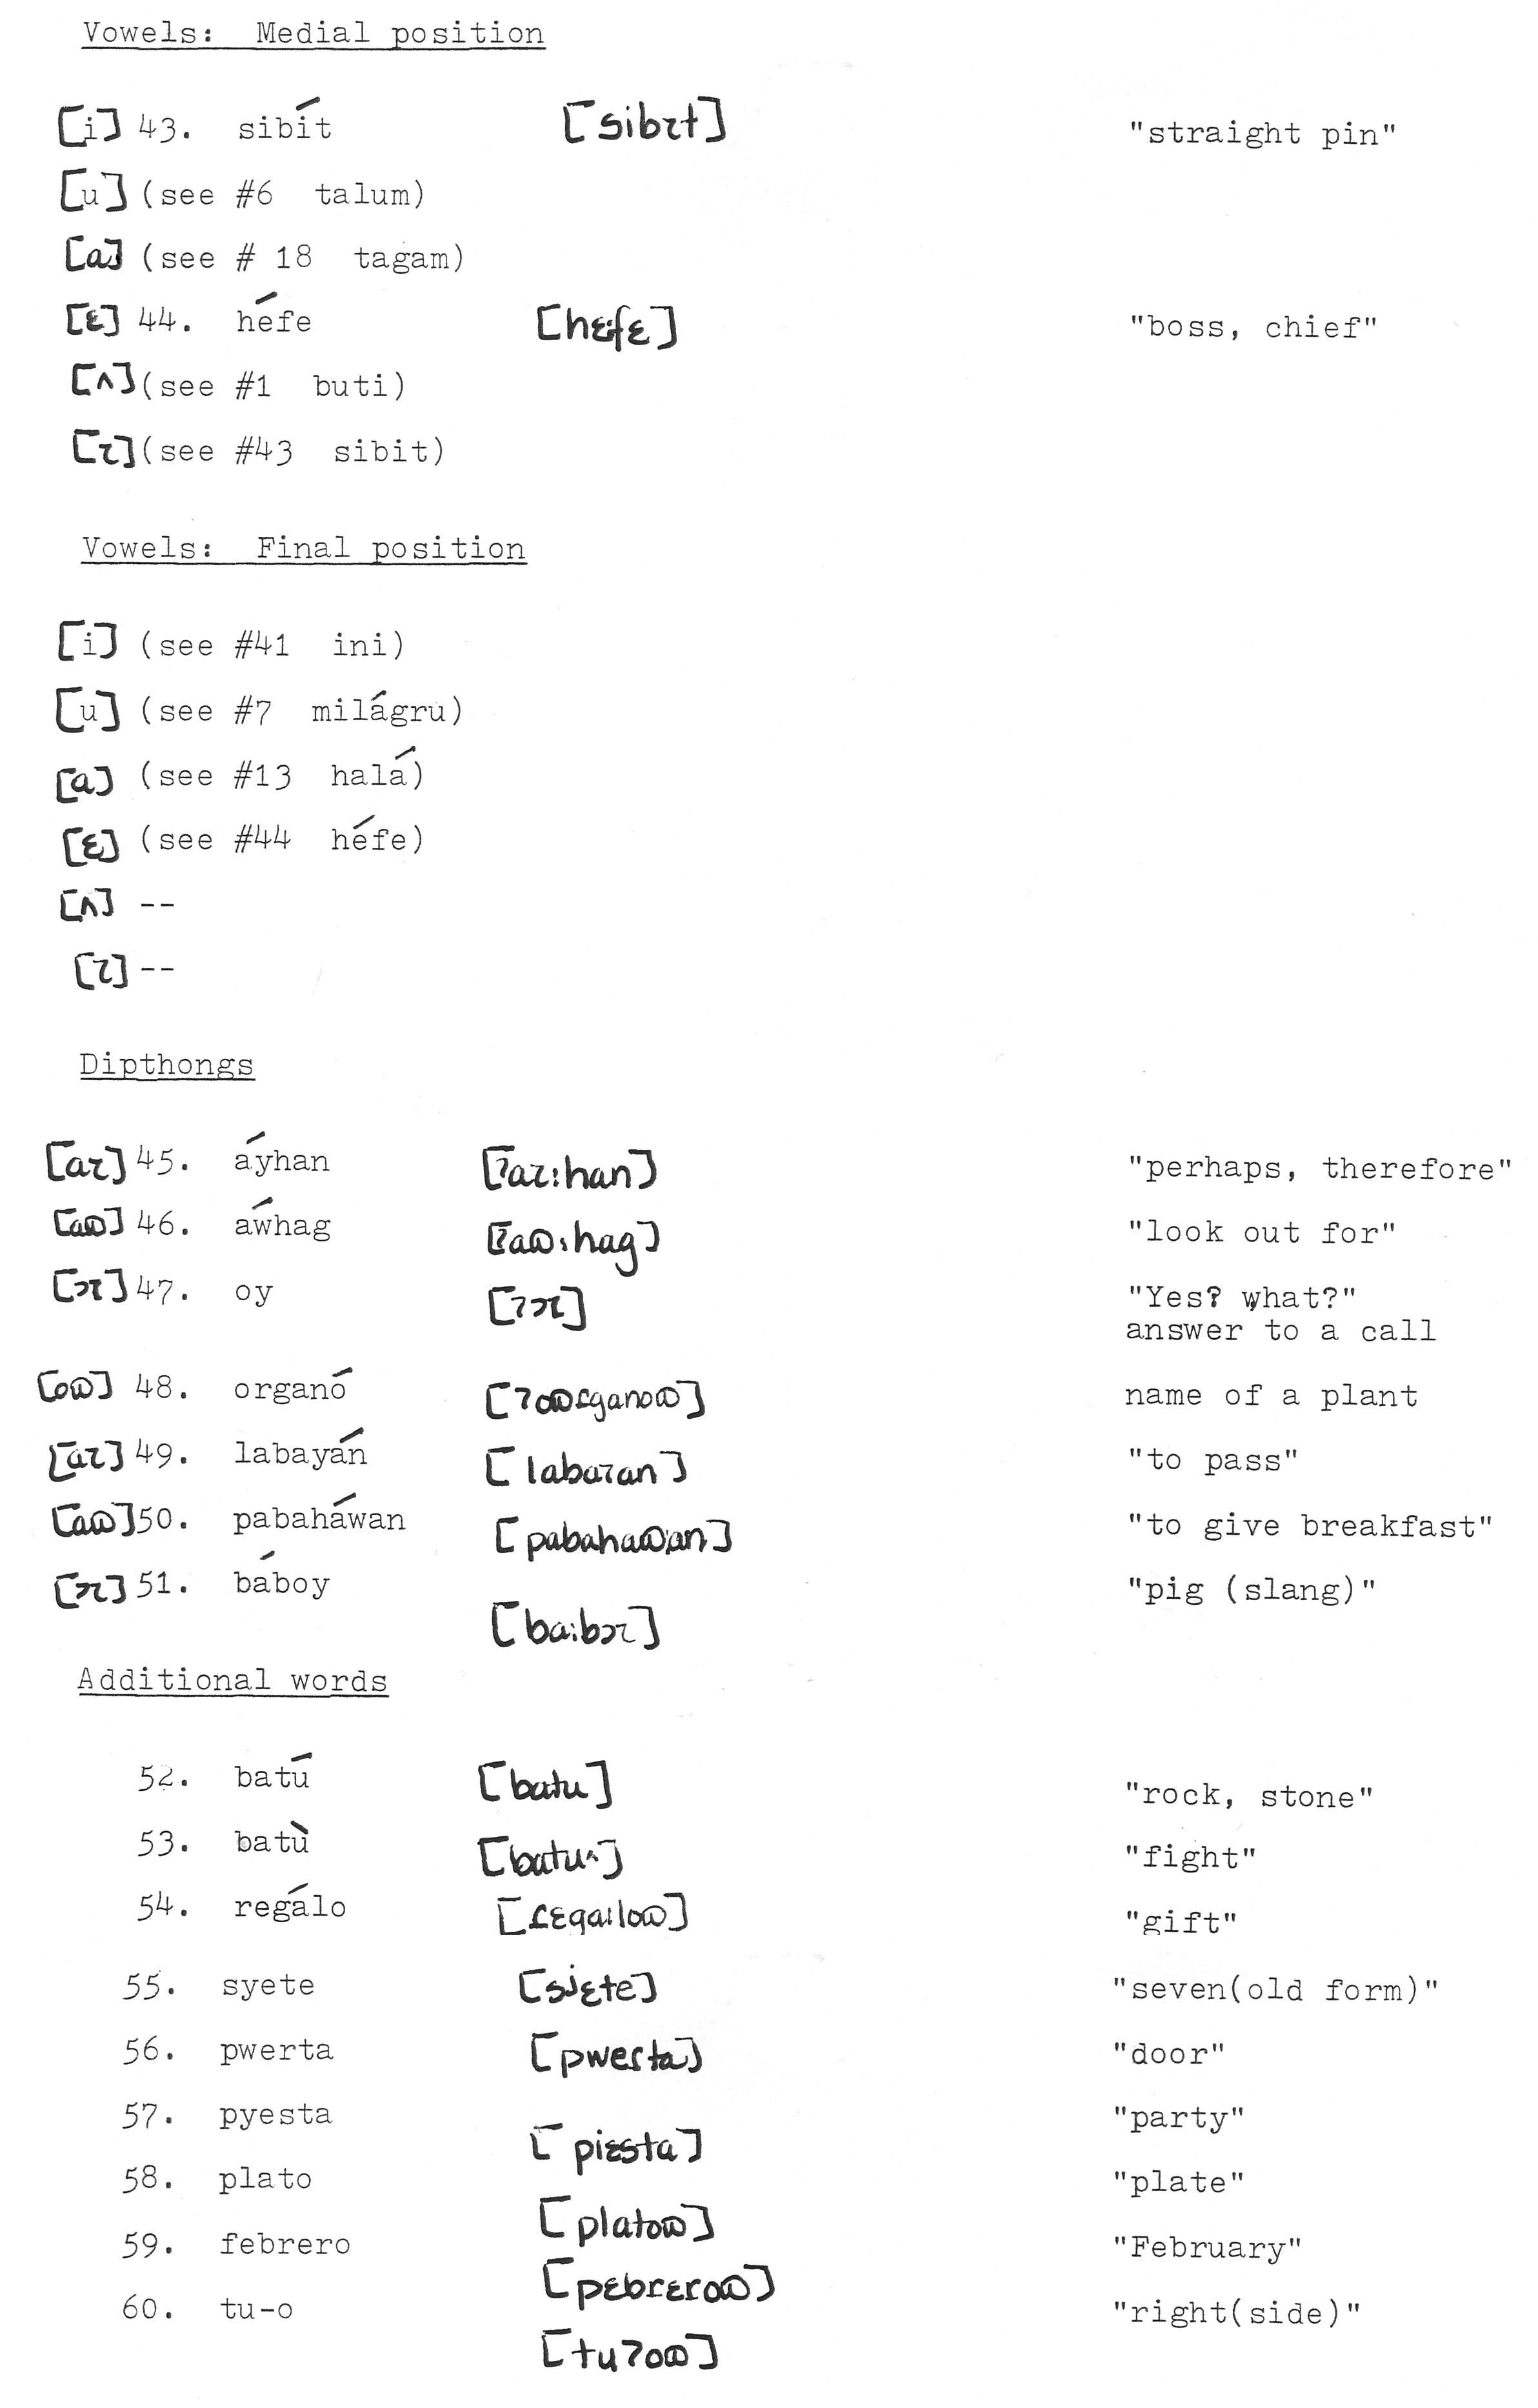 Vowels: Medial position
[i] 43. sibít [sibɪt] "straight pin"
[u] (see #6 talum)
[a] (see # 18 tagam)
[ɛ] 44. héfe [hɛfɛ] "boss, chief"
[ʌ] (see #1 buti)
[ɪ] (see #43 sibit)
Vowels: Final position
[i] (see #41 ini)
[u] (see #7 milágru)
[a] (see #13 halá)
[ɛ] (see #44 héfe)
[ʌ] --
[ɪ] --
Dipthongs
[aɪ] 45. áyhan [ʔaɪ:han] "perhaps, therefore"
[aɷ] 46. áwhag [ʔaɷ:hag] "look out for"
[ɔɪ] 47. oy [ʔɔɪ] "Yes? what?"
answer to a call
[oɷ] 48. organó [ʔoɷɾganoɷ] name of a plant
[aɪ] 49. labayán [labaɪan] "to pass"
[aɷ] 50. pabaháwan [pabahaɷan] "to give breakfast"
[ɔɪ] 51. báboy [ba:bɔɪ] "pig (slang)"
Additional words
52. batú [batu] "rock, stone"
53. batù "fight"
54. regálo [ɾɛga:loɷ] "gift"
55. syete [siɛte] "seven(old form)"
56. pwerta [pweɾta] "door"
57. pyesta [piɛsta] "party"
58. plato [platoɷ] "plate"
59. febrero [pɛbrɛroɷ] "February"
60. tu-o [tuʔoɷ] "right(side)"